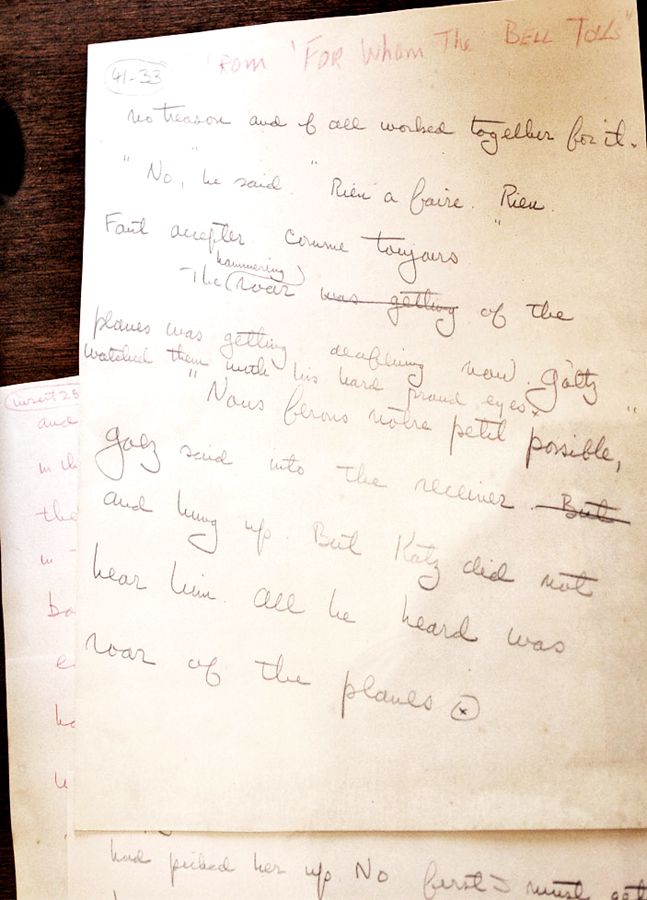 41-33
From "FOR Whom The BELL Tolls"
no treason and if all worked together for it.
"No," he said. "Rien a faire. Rien.
Faut accepter. Comme toujours"
hammering
The roar was getting of the
planes was getting deafening now. Goltz
watched them with his hard proud eyes.
"Nous ferons notre petit possible,"
Golz said into the receiver. But
and hung up. But Kotz did not
hear him. All he heard was
roar of the planes
insert 25
and
the
in
had picked her up. No first I must get